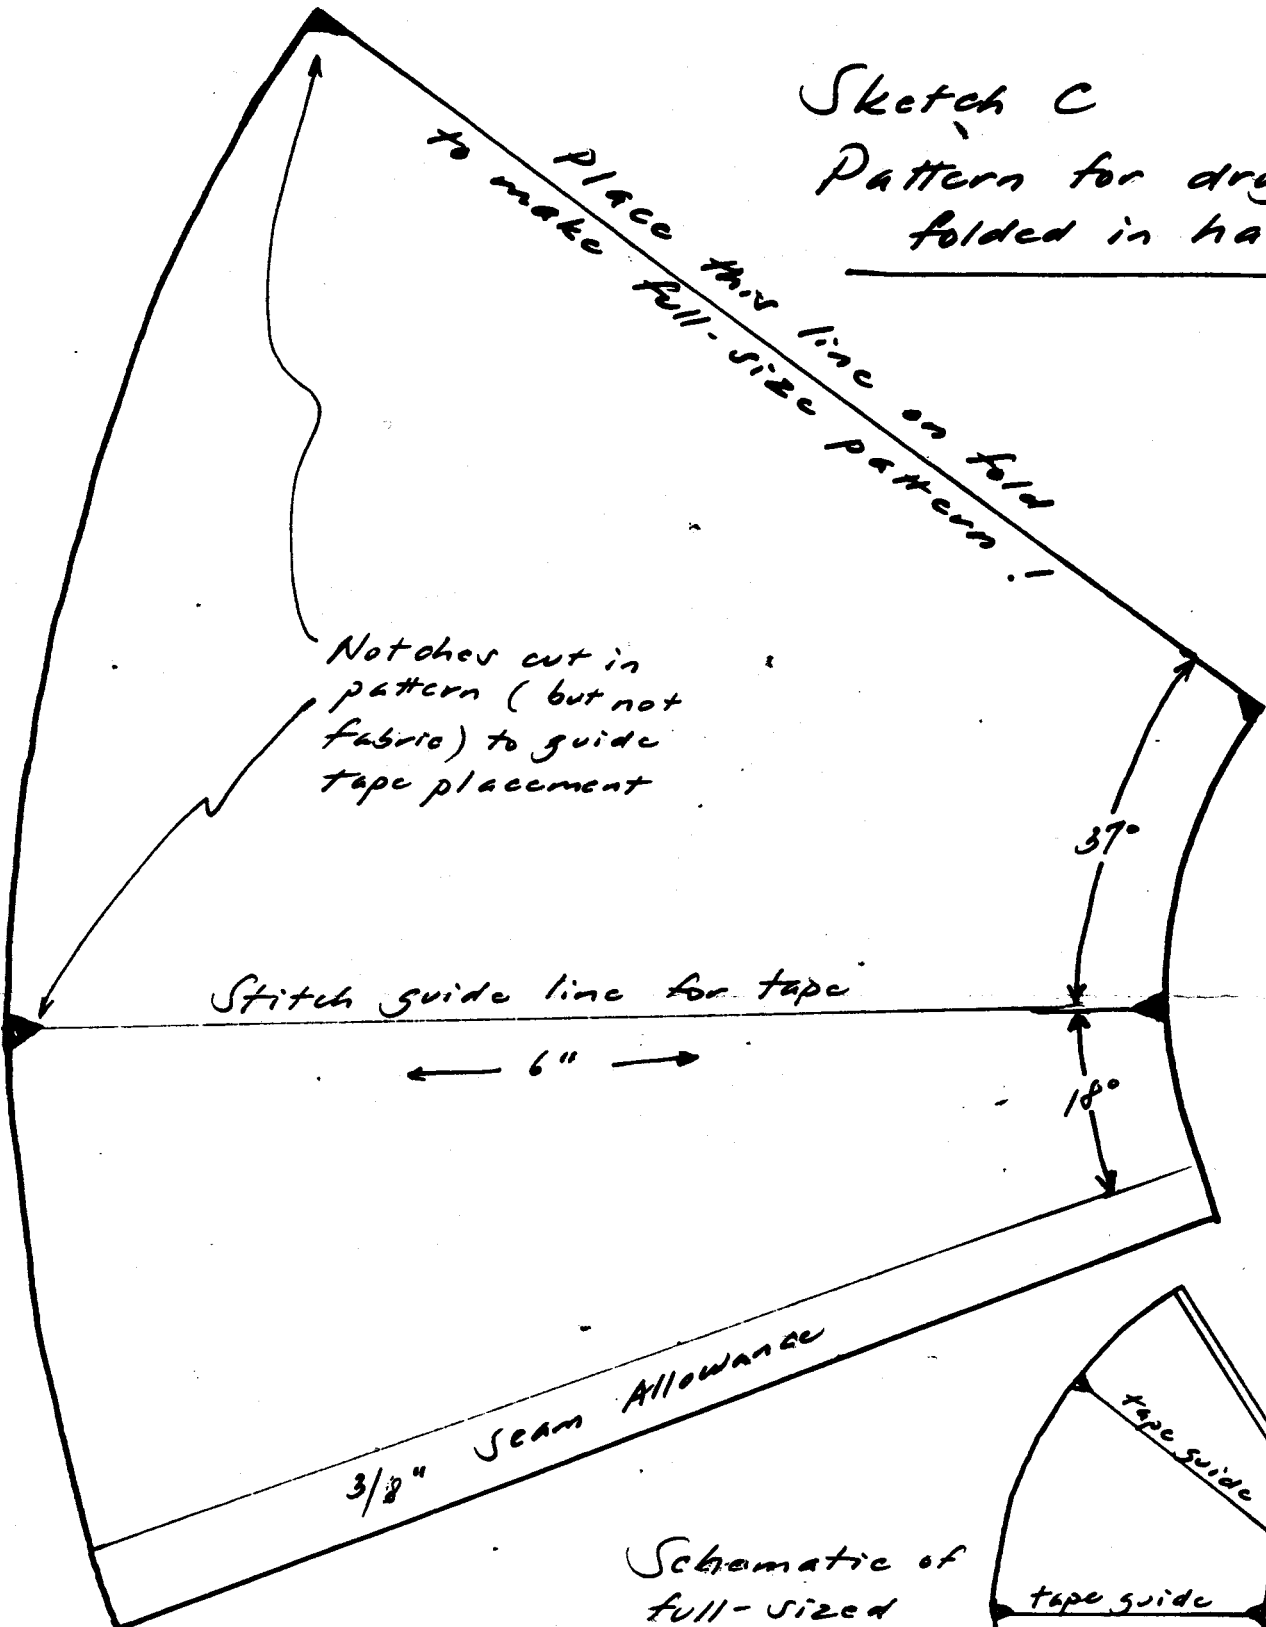 Sketch C
Pattern for dry
folded in ha
Place this line on fold
to make full-size pattern!
Notches cut in
pattern (but not
fabric) to guide
tape placement
37°
Stitch guide line for tape
6"
18°
3/8" Seam Allowance
tape guide
Schematic of
full-sized
tape guide